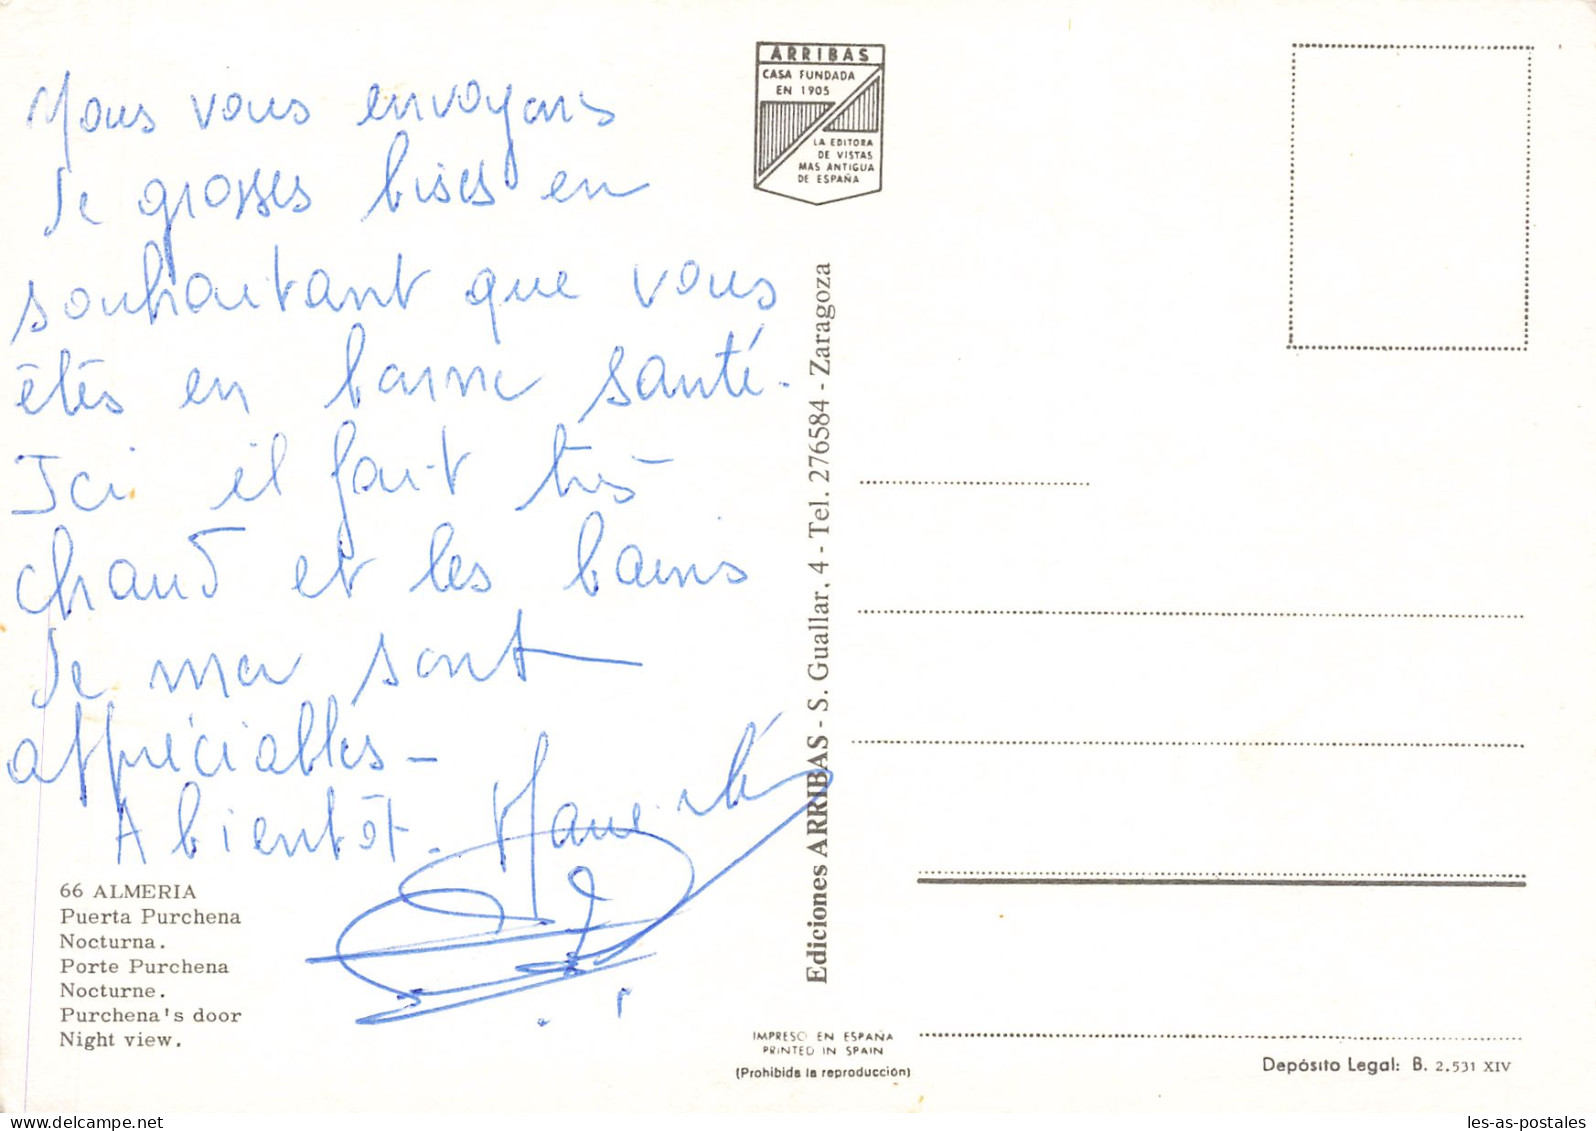 Nous vous envoyons
de grosses bises en
souhaitant que vous
êtes en bonne santé.
Ici il fait très
chaud et les bains
de mer sont
appréciables -
A bientôt.
66 ALMERIA
Puerta Purchena
Nocturna.
Porte Purchena
Nocturne.
Purchena's door
Night view.
ARRIBAS
CASA FUNDADA
EN 1905
LA EDITORA
DE VISTAS
MAS ANTIGUA
DE ESPAÑA
Ediciones ARRIBAS - S. Guallar, 4 - Tel. 276584 - Zaragoza
IMPRESO EN ESPAÑA
PRINTED IN SPAIN
(Prohibida la reproducción)
Depósito Legal: B. 2.531 XIV
les-as-postales